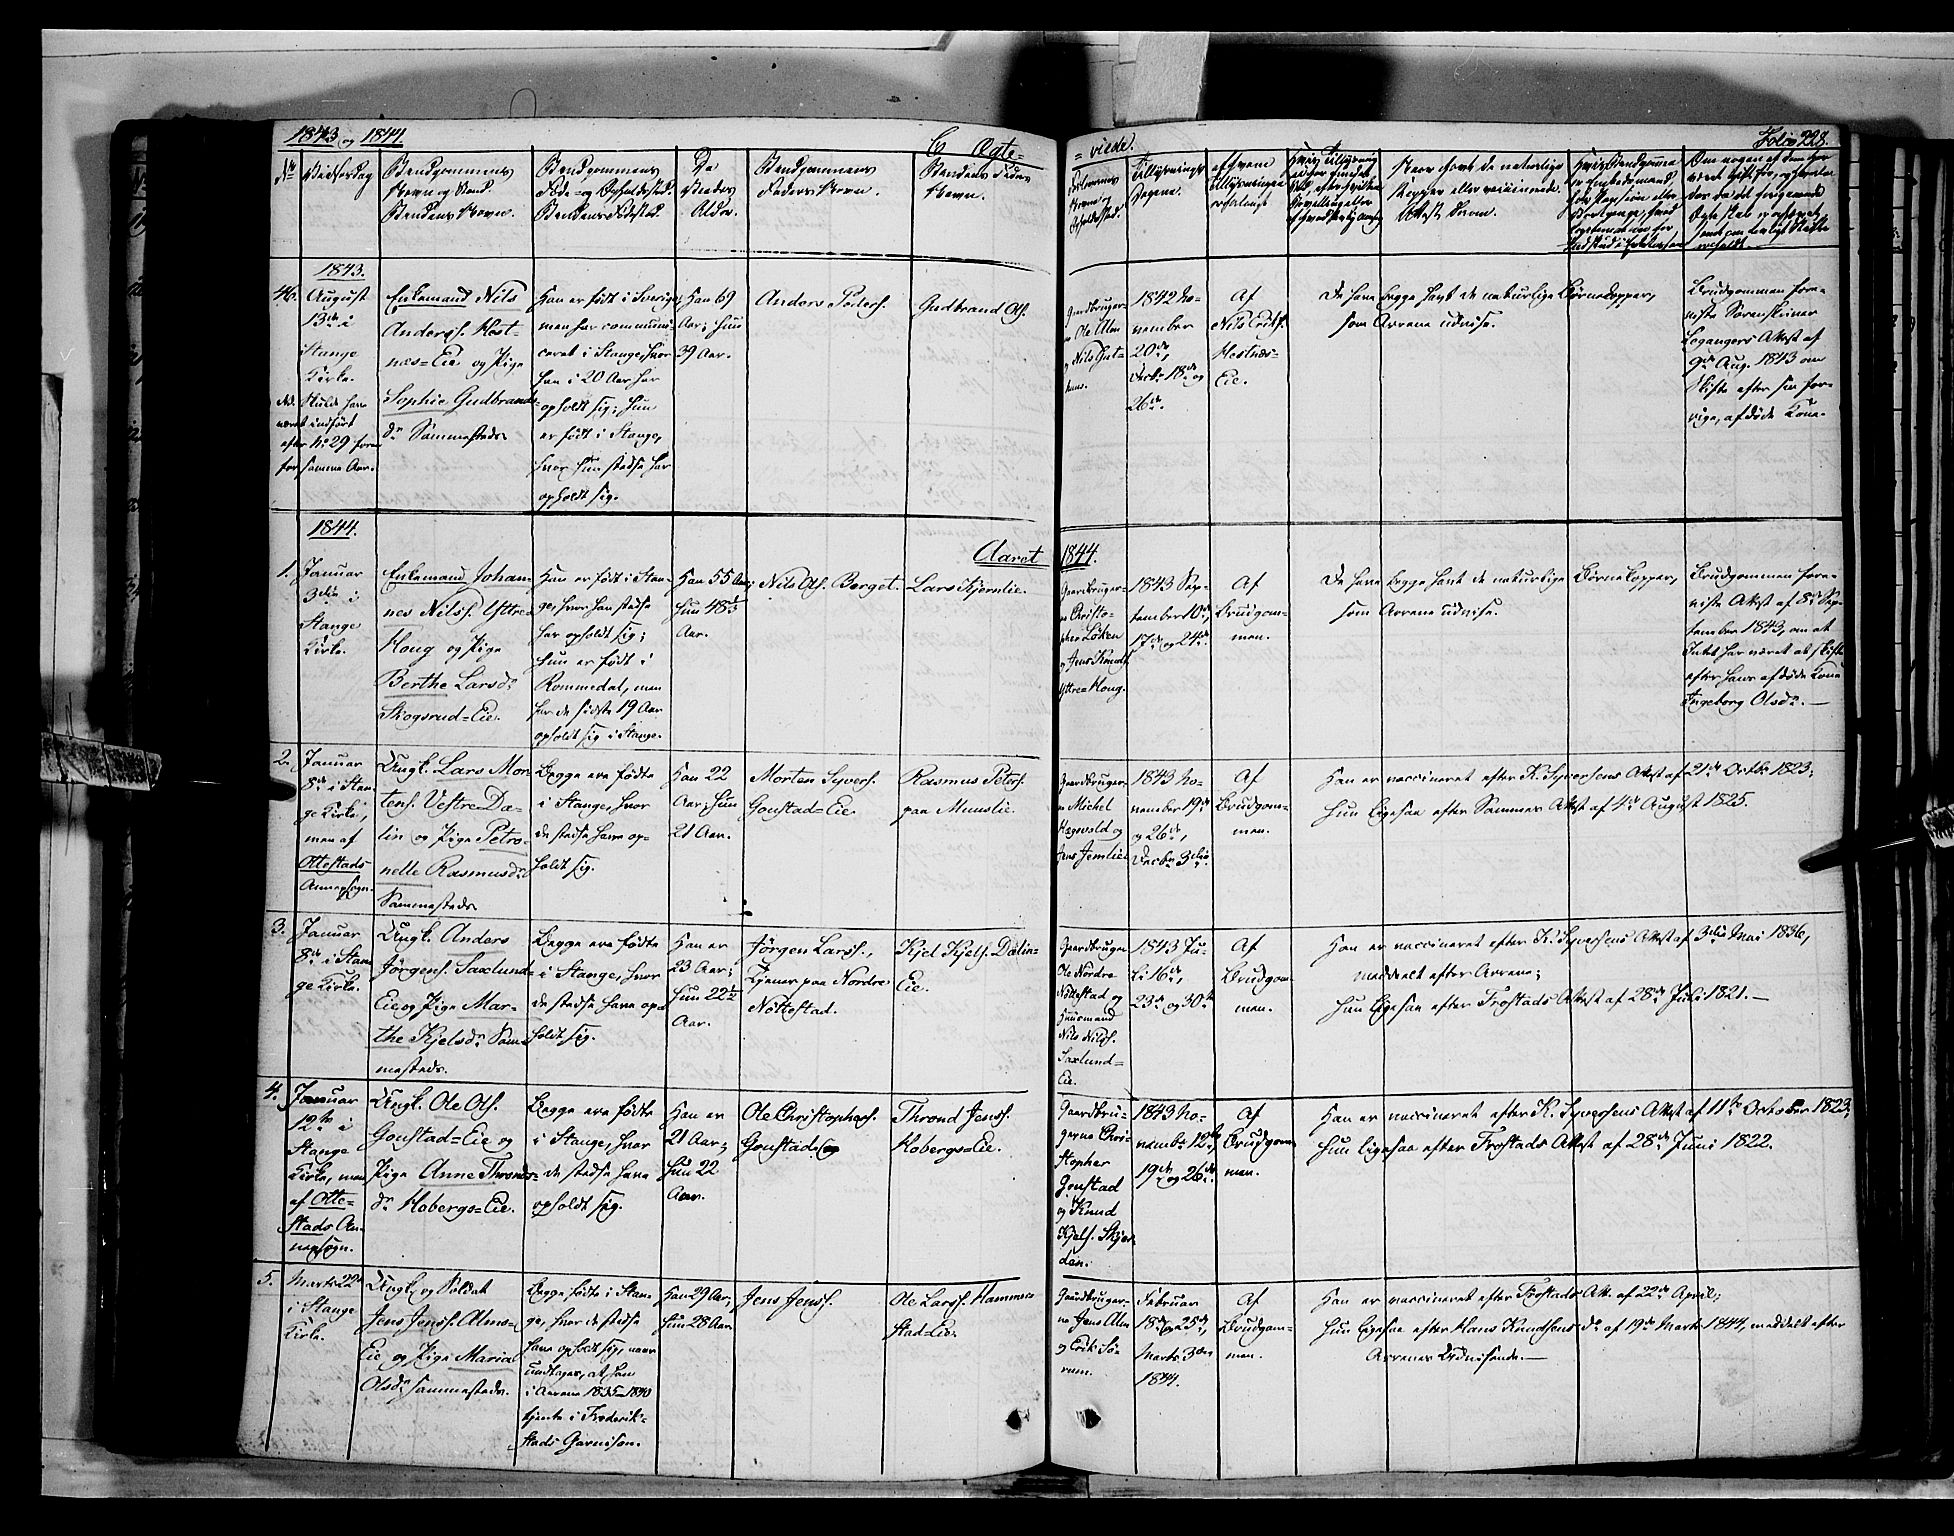 1843 og 1844.
C Ægte=
= viede.
Folio 228.
No
Vielsesdag
Brudgommens
Navn og Stand.
Brudens Navn.
Brudgommens
Føde- og Opholdssted.
Brudens Fødested.
De
Viedes
Alder.
Brudgommens
Faders Navn.
Brudens Faders
Navn.
Forlovernes
Navn og
Opholdssted.
Tillysnings
Dagene.
af hvem
Tillysningen
er forlangt
Naar havt de naturlige
Kopper eller vaccinerede.
Attests Datum.
1843.
46.
August
13de i
Stange
Kirke.
Skulde have
været indført
efter No 29 foran
for samme Aar.
Enkemand Nils
Anders. Hest-
næs=Eie og Pige
Sophie Gudbrands-
dr Sammesteds
Han er født i Sverige,
men har communi-
ceret i Stange, hvor
han i 20 Aar har
opholdt sig; hun
er født i Stange,
hvor hun stedse har
opholdt sig.
Han 69
Aar; hun
39 Aar.
Anders Peders.
Gudbrand Ols.
Gaardbruger-
ne Ole Alm
og Nils Gut-
1842 No-
vember
20de,
Decbr 18de og
26de.
Af
Nils Eriks.
Hestnæs-
Eie.
De have begge havt de naturlige Børnekopper,
som Arrene udvise.
Brudgommen fore-
viste Sorenskriver
Løgangers Attest af
9de Aug. 1843 om
Skifte efter sin for-
rige, afdøde Kone.
1844.
Aaret
1844.
1.
Januar
3die i
Stange
Kirke.
Enkemand Johan-
nes Nilss. Yttre-
Houg og Pige
Berthe Larsdr
Skogsrud=Eie.
Han er født i Stan-
ge, hvor han stedse
har opholdt sig;
hun er født i
Rommedal, men
har de sidste 19 Aar
opholdt sig i Stange.
Han 55 Aar;
hun 48½
Aar.
Nils Ols. Berget.
Lars Kjernlie.
Gaardbruger-
ne Christo-
pher Løken
og Jens Knuds.
Yttre Houg.
1843 Sep-
tember 10de,
17de og 24de.
Af
Brudgom-
men.
De have begge havt de naturlige Børnekopper,
som Arrene udvise.
Brudgommen fore-
viste Attest af 8de Sep-
tember 1843, om at
Intet har været at skifte
efter hans afdøde Kone
Ingeborg Olsdr. —
2.
Januar
8de i Stan-
ge Kirke,
men af
Ottestads
Annexsogn.
Ungk. Lars Mor-
tens. Vestre Dæ-
lin og Pige Petro-
nelle Rasmusdr
Sammesteds
Begge ere fødte
i Stange, hvor
de stedse have op-
holdt sig.
Han 22
Aar; hun
21 Aar.
Morten Syvers.
Gonstad=Eie
Rasmus Peters.
paa Munslie.
Gaardbruger-
ne Michel
Hagevold og
Jens Jemlie.
1843 No-
vember 19de
og 26de,
Decbr 3die.
Af
Brudgom-
men.
Han er vaccineret efter K. Syversens Attest af 21de Octbr 1823;
hun ligesaa efter Sammes Attest af 4de August 1825.
3.
Januar
8de i Stan-
ge Kirke.
Ungk. Anders
Jørgens. Saxlund-
Eie og Pige Mar-
the Kjelsdr Sam-
mesteds.
Begge ere fødte
i Stange, hvor
de stedse have op-
holdt sig.
Han er
23 Aar;
hun 22½
Aar.
Jørgen Larss.,
tjener paa Nordre
Nøttestad.
Kjel Kjels. Dælin-
Eie.
Gaardbruger
Ole Nordre
Nøttestad og
Huusmand
Nils Nilss.
Saxlund=
Eie.
1843 Ju-
li 16de,
23de og 30te.
Af
Brudgom-
men.
Han er vaccineret efter K. Syversens Attest af 3die Mai 1836,
meddelt efter Arrene;
hun ligesaa efter Frostads Attest af 28de Juli 1821. —
4.
Januar
12te i
Stange
Kirke, men
af Otte-
stads An-
nexsogn.
Ungk. Ole Ols.
Gonstad=Eie og
Pige Anne Thronds-
dr Hobergs=Eie.
Begge ere fødte
i Stange, hvor
de stedse have
opholdt sig.
Han er
21 Aar;
hun 22
Aar.
Ole Christophers.
Gonstad
Thrond Jenss.
Hobergs=Eie.
Gaardbru-
gerne Chri-
stopher
Gonstad
og Knud
Kjels. Skjer-
den.
1843 No-
vembr 12te,
19de og 26de.
Af
Brudgom-
men.
Han er vaccineret efter K. Syversens Attest af 11te October 1823;
hun ligesaa efter Frostads Attest af 28de Juni 1822.
5.
Marts 22de
i Stange
Kirke.
Ungk. og Soldat
Jens Jenss. Alms-
Eie og Pige Maria
Olsdr sammesteds.
Begge fødte i Stan-
ge, hvor de stedse
have opholdt sig, naar
undtages, at han
i Aarene 1835-1840
tjente i Frederik-
stads Garnison.
Han 29 Aar,
hun 28 Aar.
Jens Jenss.
Ole Larss. Hammer-
stad=Eie.
Gaardbruger-
ne Jens Alm
og Erik Sø-
rum.
Februar
18de og 25de,
Marts 3die
1844.
Af
Brudgom-
men.
Han er vaccineret efter Frostads Att. af 22de April;
hun ligesaa efter Hans Knudsens do af 19de Marts 1844, meddelt efter
Arrenes Udvisende. —